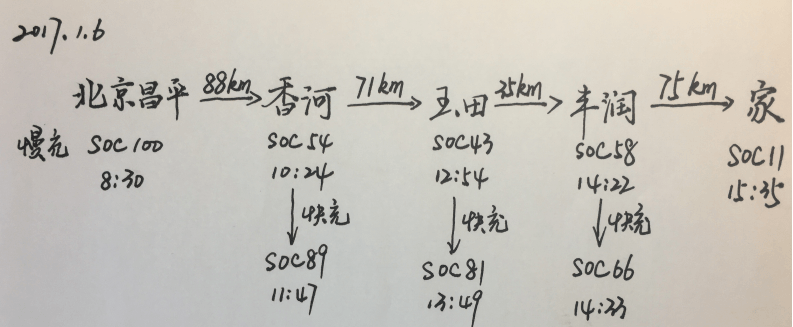 2017.1.6
北京昌平 88km 香河 71km 玉田 35km 丰润 75km 家
慢充 SOC100 SOC54 SOC43 SOC58 SOC11
8:30 10:24 12:54 14:22 15:35
快充 快充 快充
SOC89 SOC81 SOC66
11:47 13:49 14:33